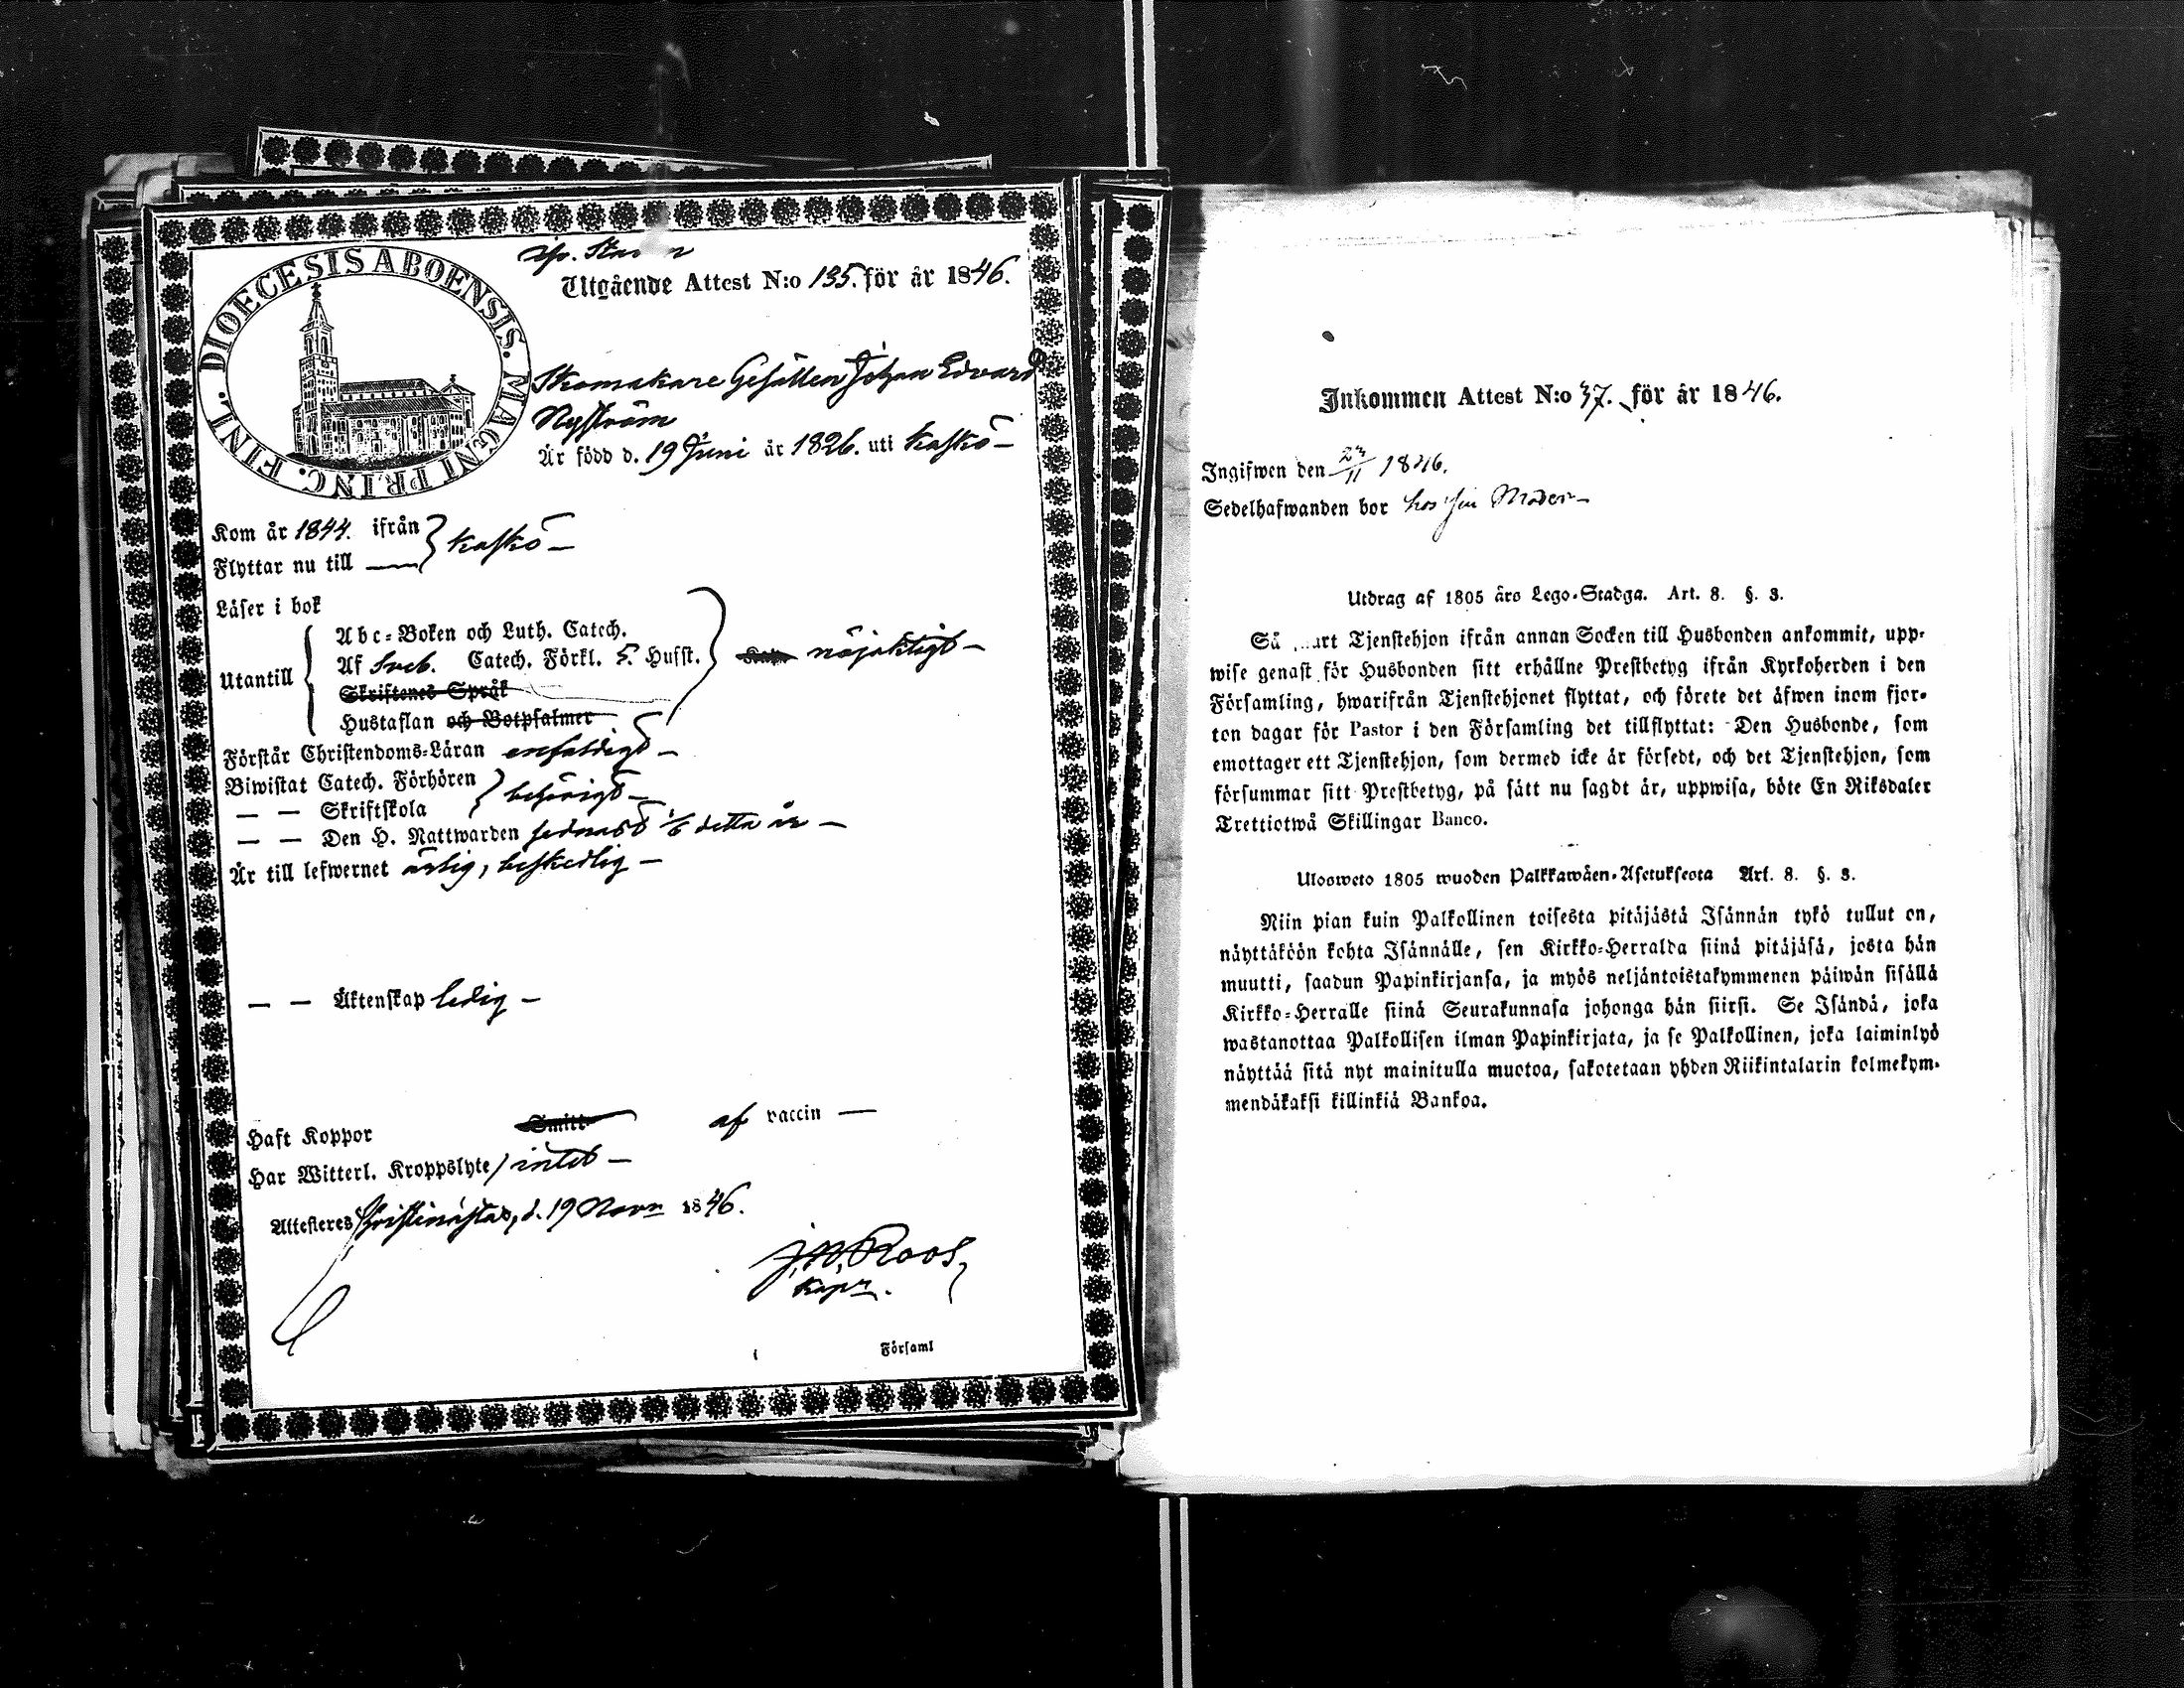 DIOECESIS ABOENSIS. MAGNI PRINC. FINL.
Utgående Attest N:o 135. för år 1846.
Skomakare Gesällen Johan Edvard
Nyström
Är född d. 19 Juni år 1826. uti Kaskö –
Kom år 1844. ifrån } Kaskö –
Flyttar nu till —
Läser i bok
Utantill
Abc-Boken och Luth. Catech.
Af Sveb. Catech. Förkl. 5. Husst. nöjaktigt –
Skriftenes Språk
Hustaflan och Botpsalmer
Förstår Christendoms-Läran enfaldigt –
Biwistat Catech. Förhören } behörigt –
— — Skriftskola
— — Den H. Nattwarden sednast 1/6 detta år –
Är till lefwernet ärlig, beskedlig –
— — Äktenskap ledig –
Haft Koppor Smitt af vaccin —
Har Witterl. Kroppslyte / intet –
Attesteres Christinæstad, d. 19 Novr 1846.
J. W. Roos,
Kapn.
Församl
Inkommen Attest N:o 37. för år 1846.
Ingifwen den 24/11 1846.
Sedelhafwanden bor hos sin Moder –
Utdrag af 1805 års Lego-Stadga. Art. 8. §. 3.
Så art Tjenstehjon ifrån annan Socken till Husbonden ankommit, upp-
wise genast för Husbonden sitt erhållne Prestbetyg ifrån Kyrkoherden i den
Församling, hwarifrån Tjenstehjonet flyttat, och förete det äfwen inom fjor-
ton dagar för Pastor i den Församling det tillflyttat: Den Husbonde, som
emottager ett Tjenstehjon, som dermed icke är försedt, och det Tjenstehjon, som
försummar sitt Prestbetyg, på sätt nu sagdt är, uppwisa, böte En Riksdaler
Trettiotwå Skillingar Banco.
Ulosweto 1805 wuoden Palkkawäen-Asetuksesta Art. 8. §. 3.
Niin pian kuin Palkollinen toisesta pitäjästä Isännän tykö tullut on,
näyttäköön kohta Isännälle, sen Kirkko-Herralda siinä pitäjäsä, josta hän
muutti, saadun Papinkirjansa, ja myös neljäntoistakymmenen päiwän sisällä
Kirkko-Herralle siinä Seurakunnasa johonga hän siirsi. Se Isändä, joka
wastanottaa Palkollisen ilman Papinkirjata, ja se Palkollinen, joka laiminlyö
näyttää sitä nyt mainitulla muotoa, sakotetaan yhden Riikintalarin kolmekym-
mendäkaksi killinkiä Bankoa.